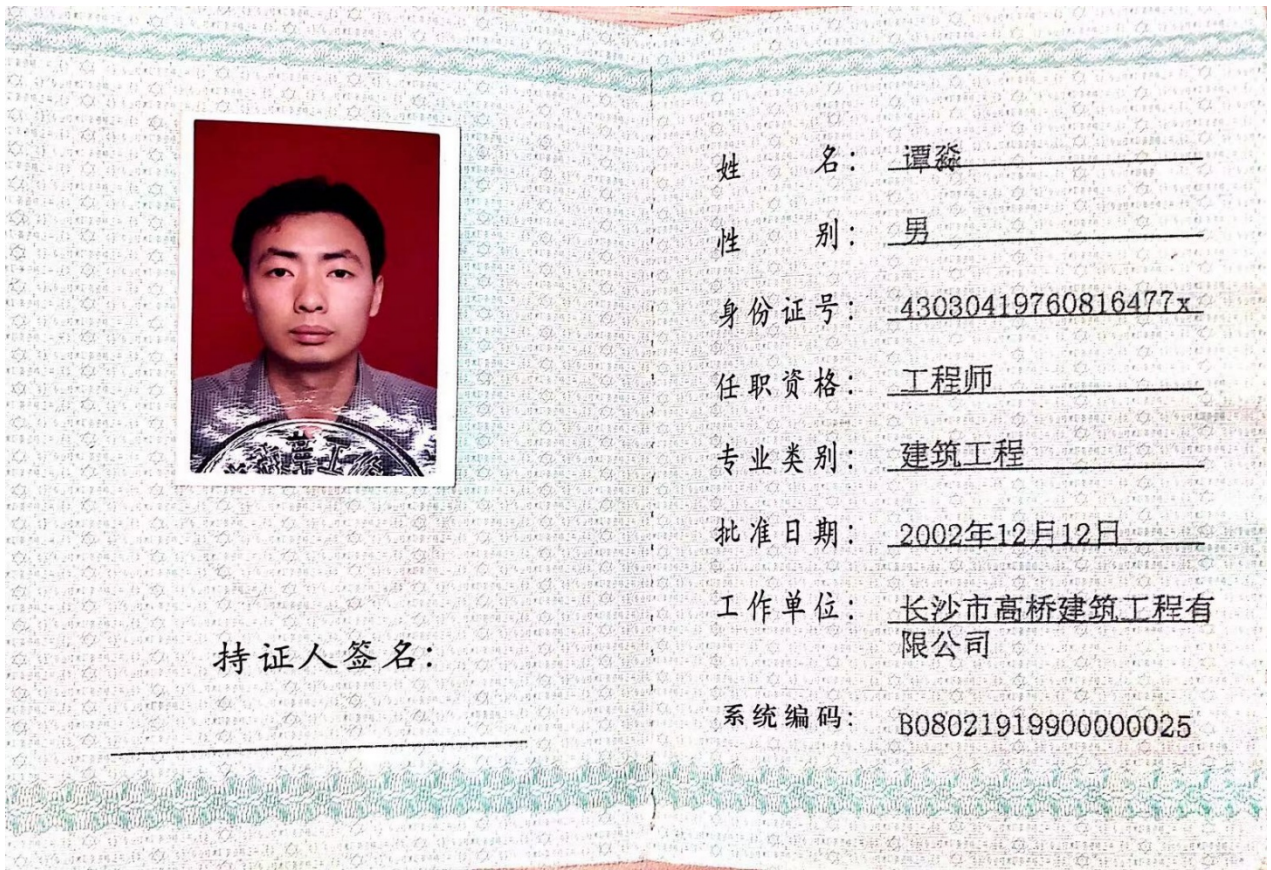 姓名：谭淼
性别：男
身份证号：43030419760816477x
任职资格：工程师
专业类别：建筑工程
批准日期：2002年12月12日
工作单位：长沙市高桥建筑工程有
限公司
系统编码：B08021919900000025
持证人签名：